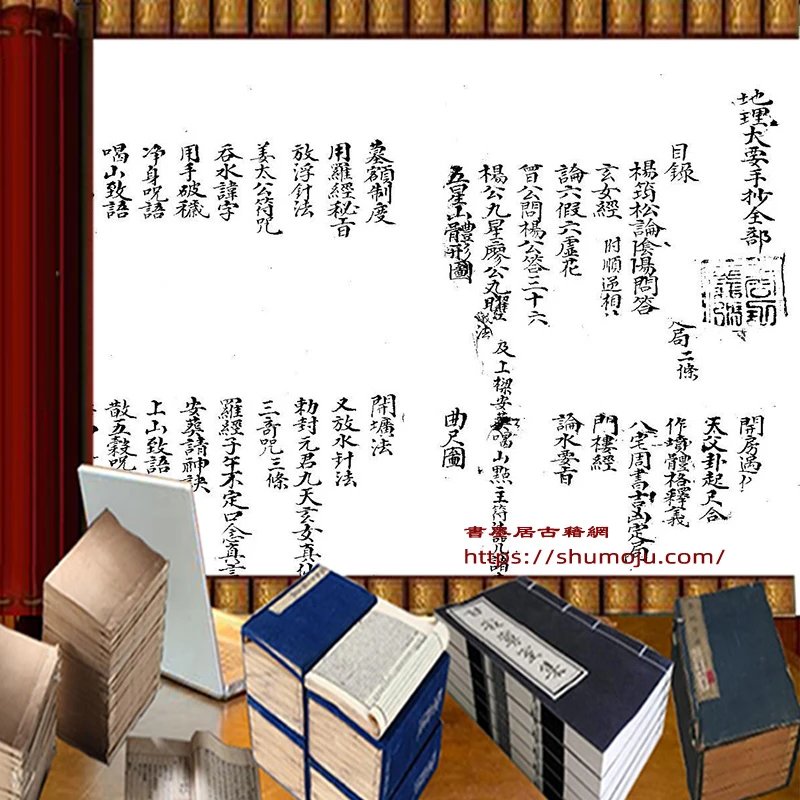 地理大要手抄全部
目錄
楊筠松論陰陽問答
玄女經 附順逆相
論六假六虛花
曾公問楊公答三十六
楊公九星廖公九曜 及上樑安葬喝山點主符語
五星山體形圖
局二條
開房遇
天父卦起尺合
作墳體格釋義
八宅周書吉凶定局
門樓經
論水要言
曲尺圖
墓額制度
用羅經秘旨
放浮針法
姜太公符咒
吞水諱字
用手破穢
净身咒語
喝山致語
開壙法
又放水針法
勅封元君九天玄女真仙
三奇咒三條
羅經子午不定口念真言
安葬請神訣
上山致語
散五穀咒
書墨居古籍網
https://shumoju.com/